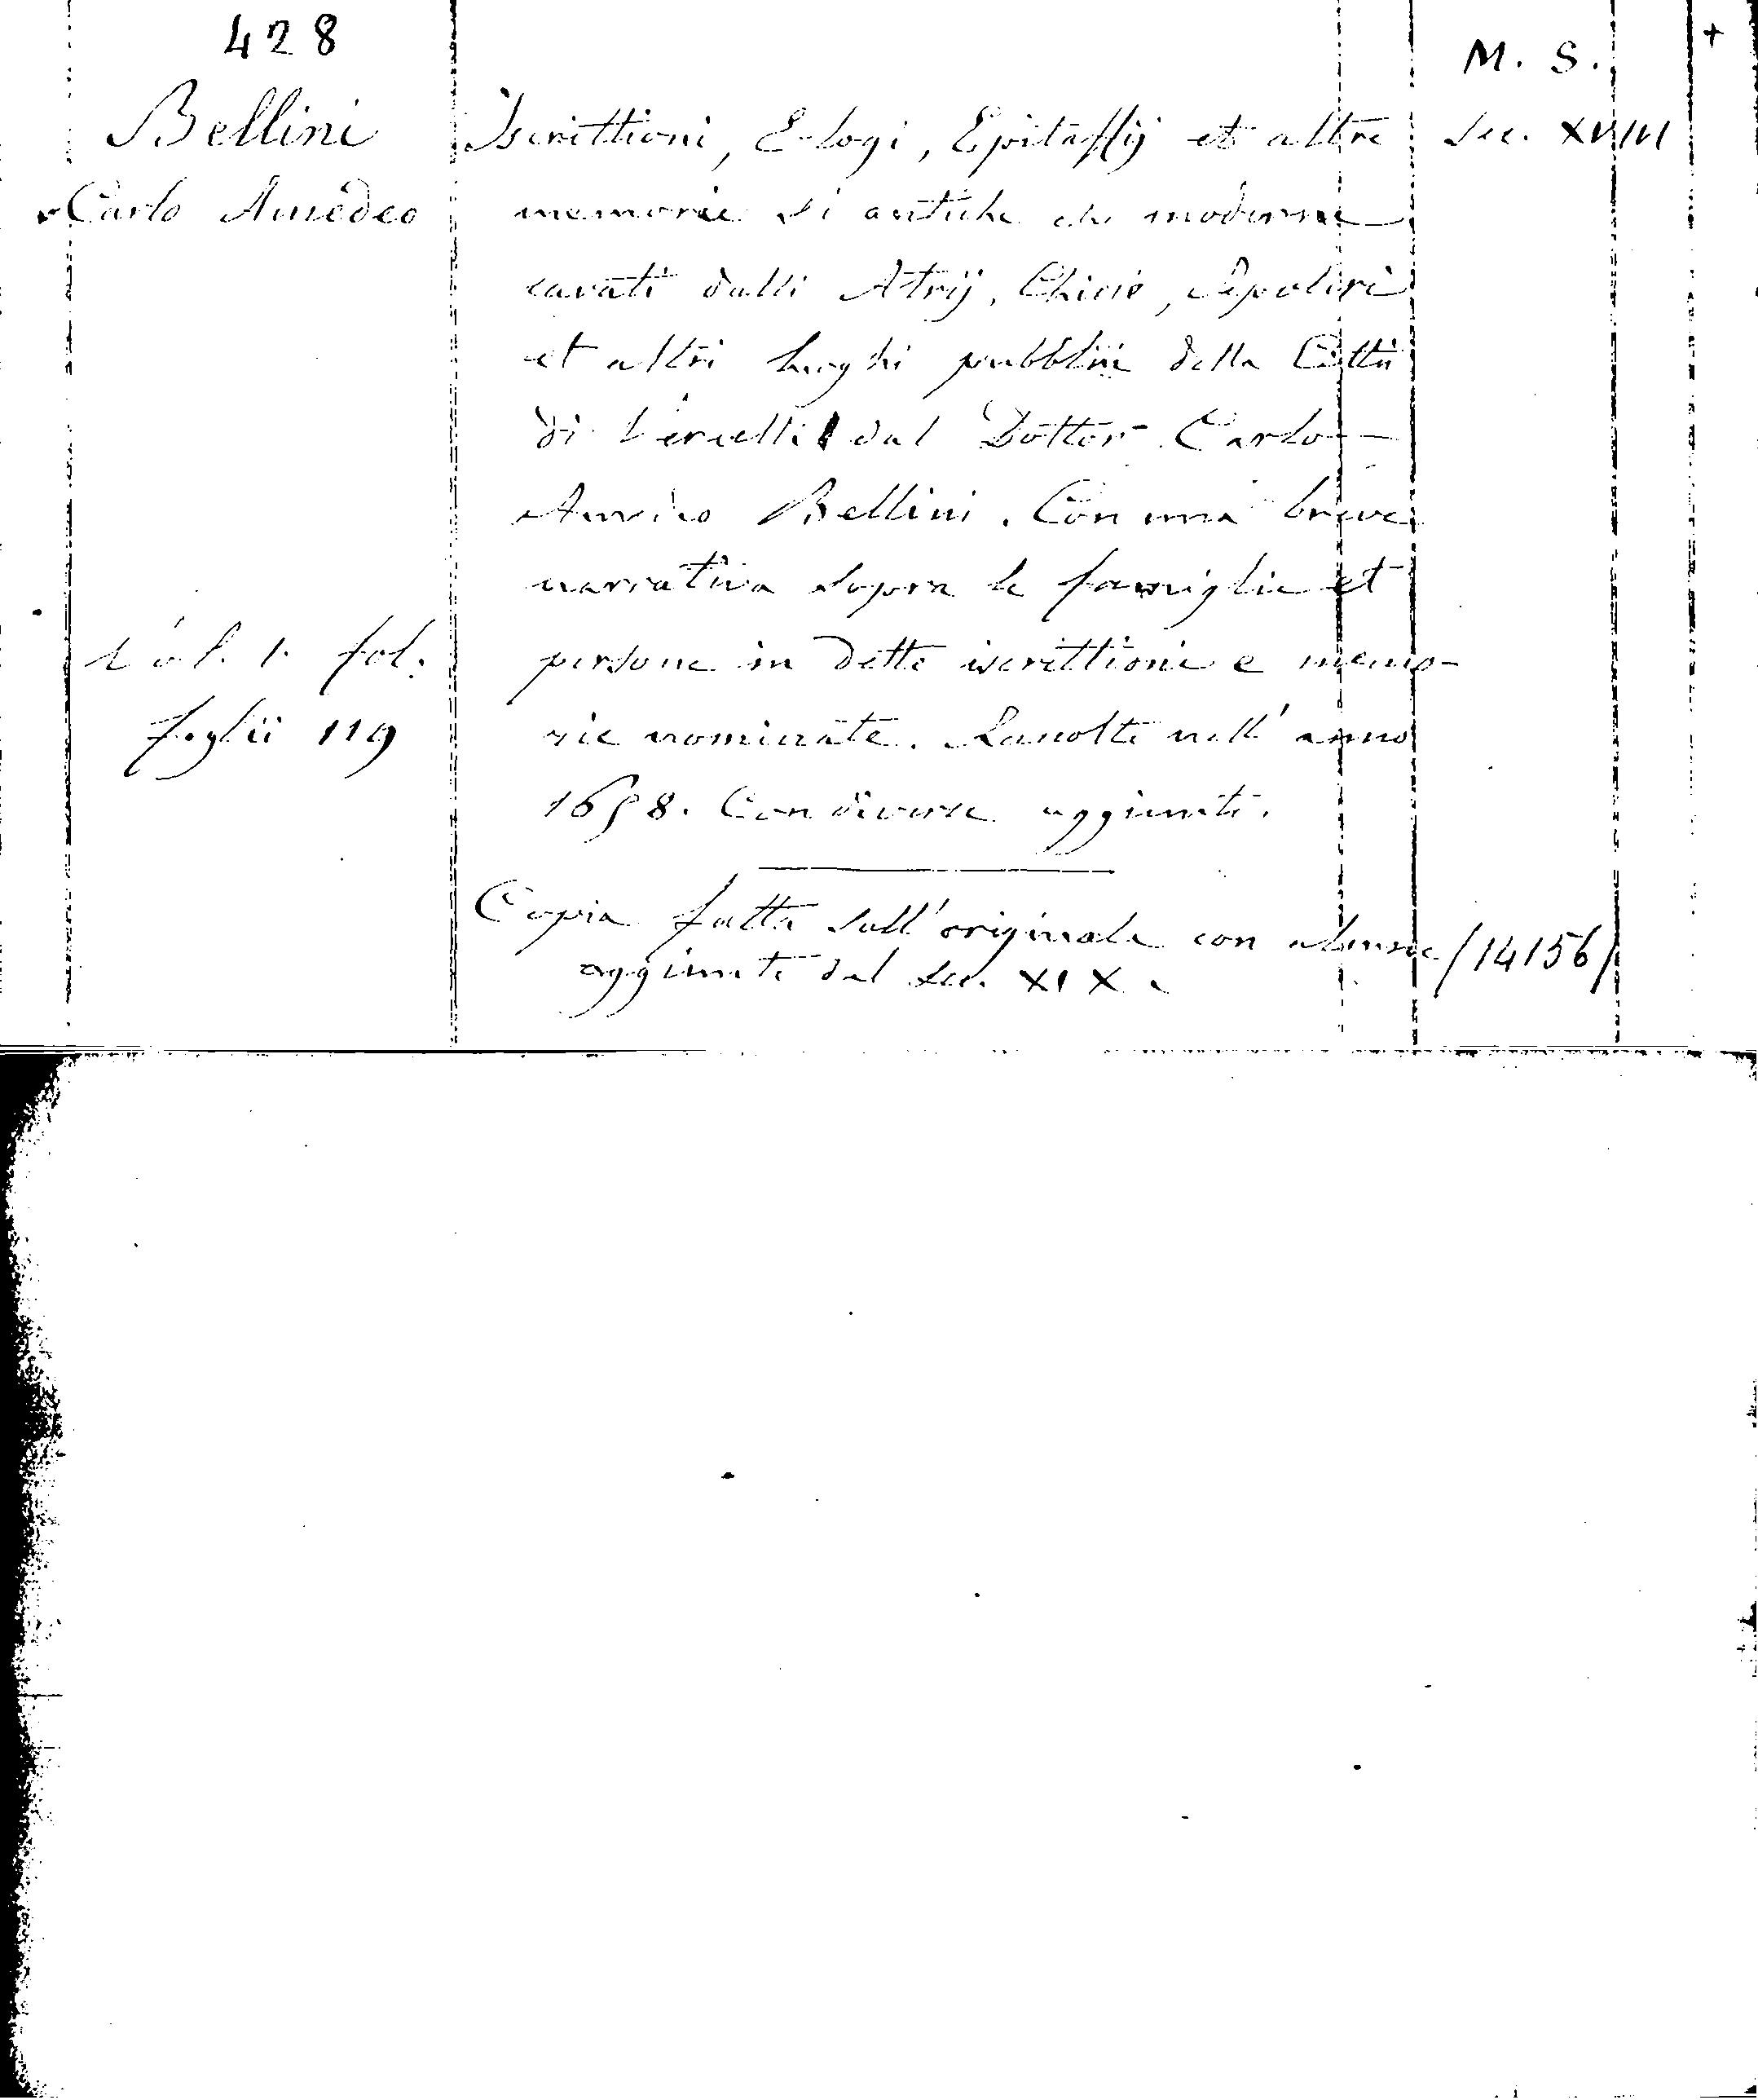 428
M. S.
+
Bellini
Carlo Amedeo
Iscrittioni, Elogi, Epitaffij et altre
Sec. XVIII
memorie si antiche che moderne
cavate dalli Atrij, Chiese, Sepolcri
et altri luoghi pubblici della Città
di Vercelli dal Dottor Carlo
Amedeo Bellini. Con una breve
narrativa sopra le famiglie et
persone in dette iscrittioni e memo-
rie nominate. Raccolte nell'anno
1658. Con diverse aggiunte.
Vol. 1. fol.
foglii 119
Copia fatta sull'originale con alcune
aggiunte del sec. XIX.
/14156/